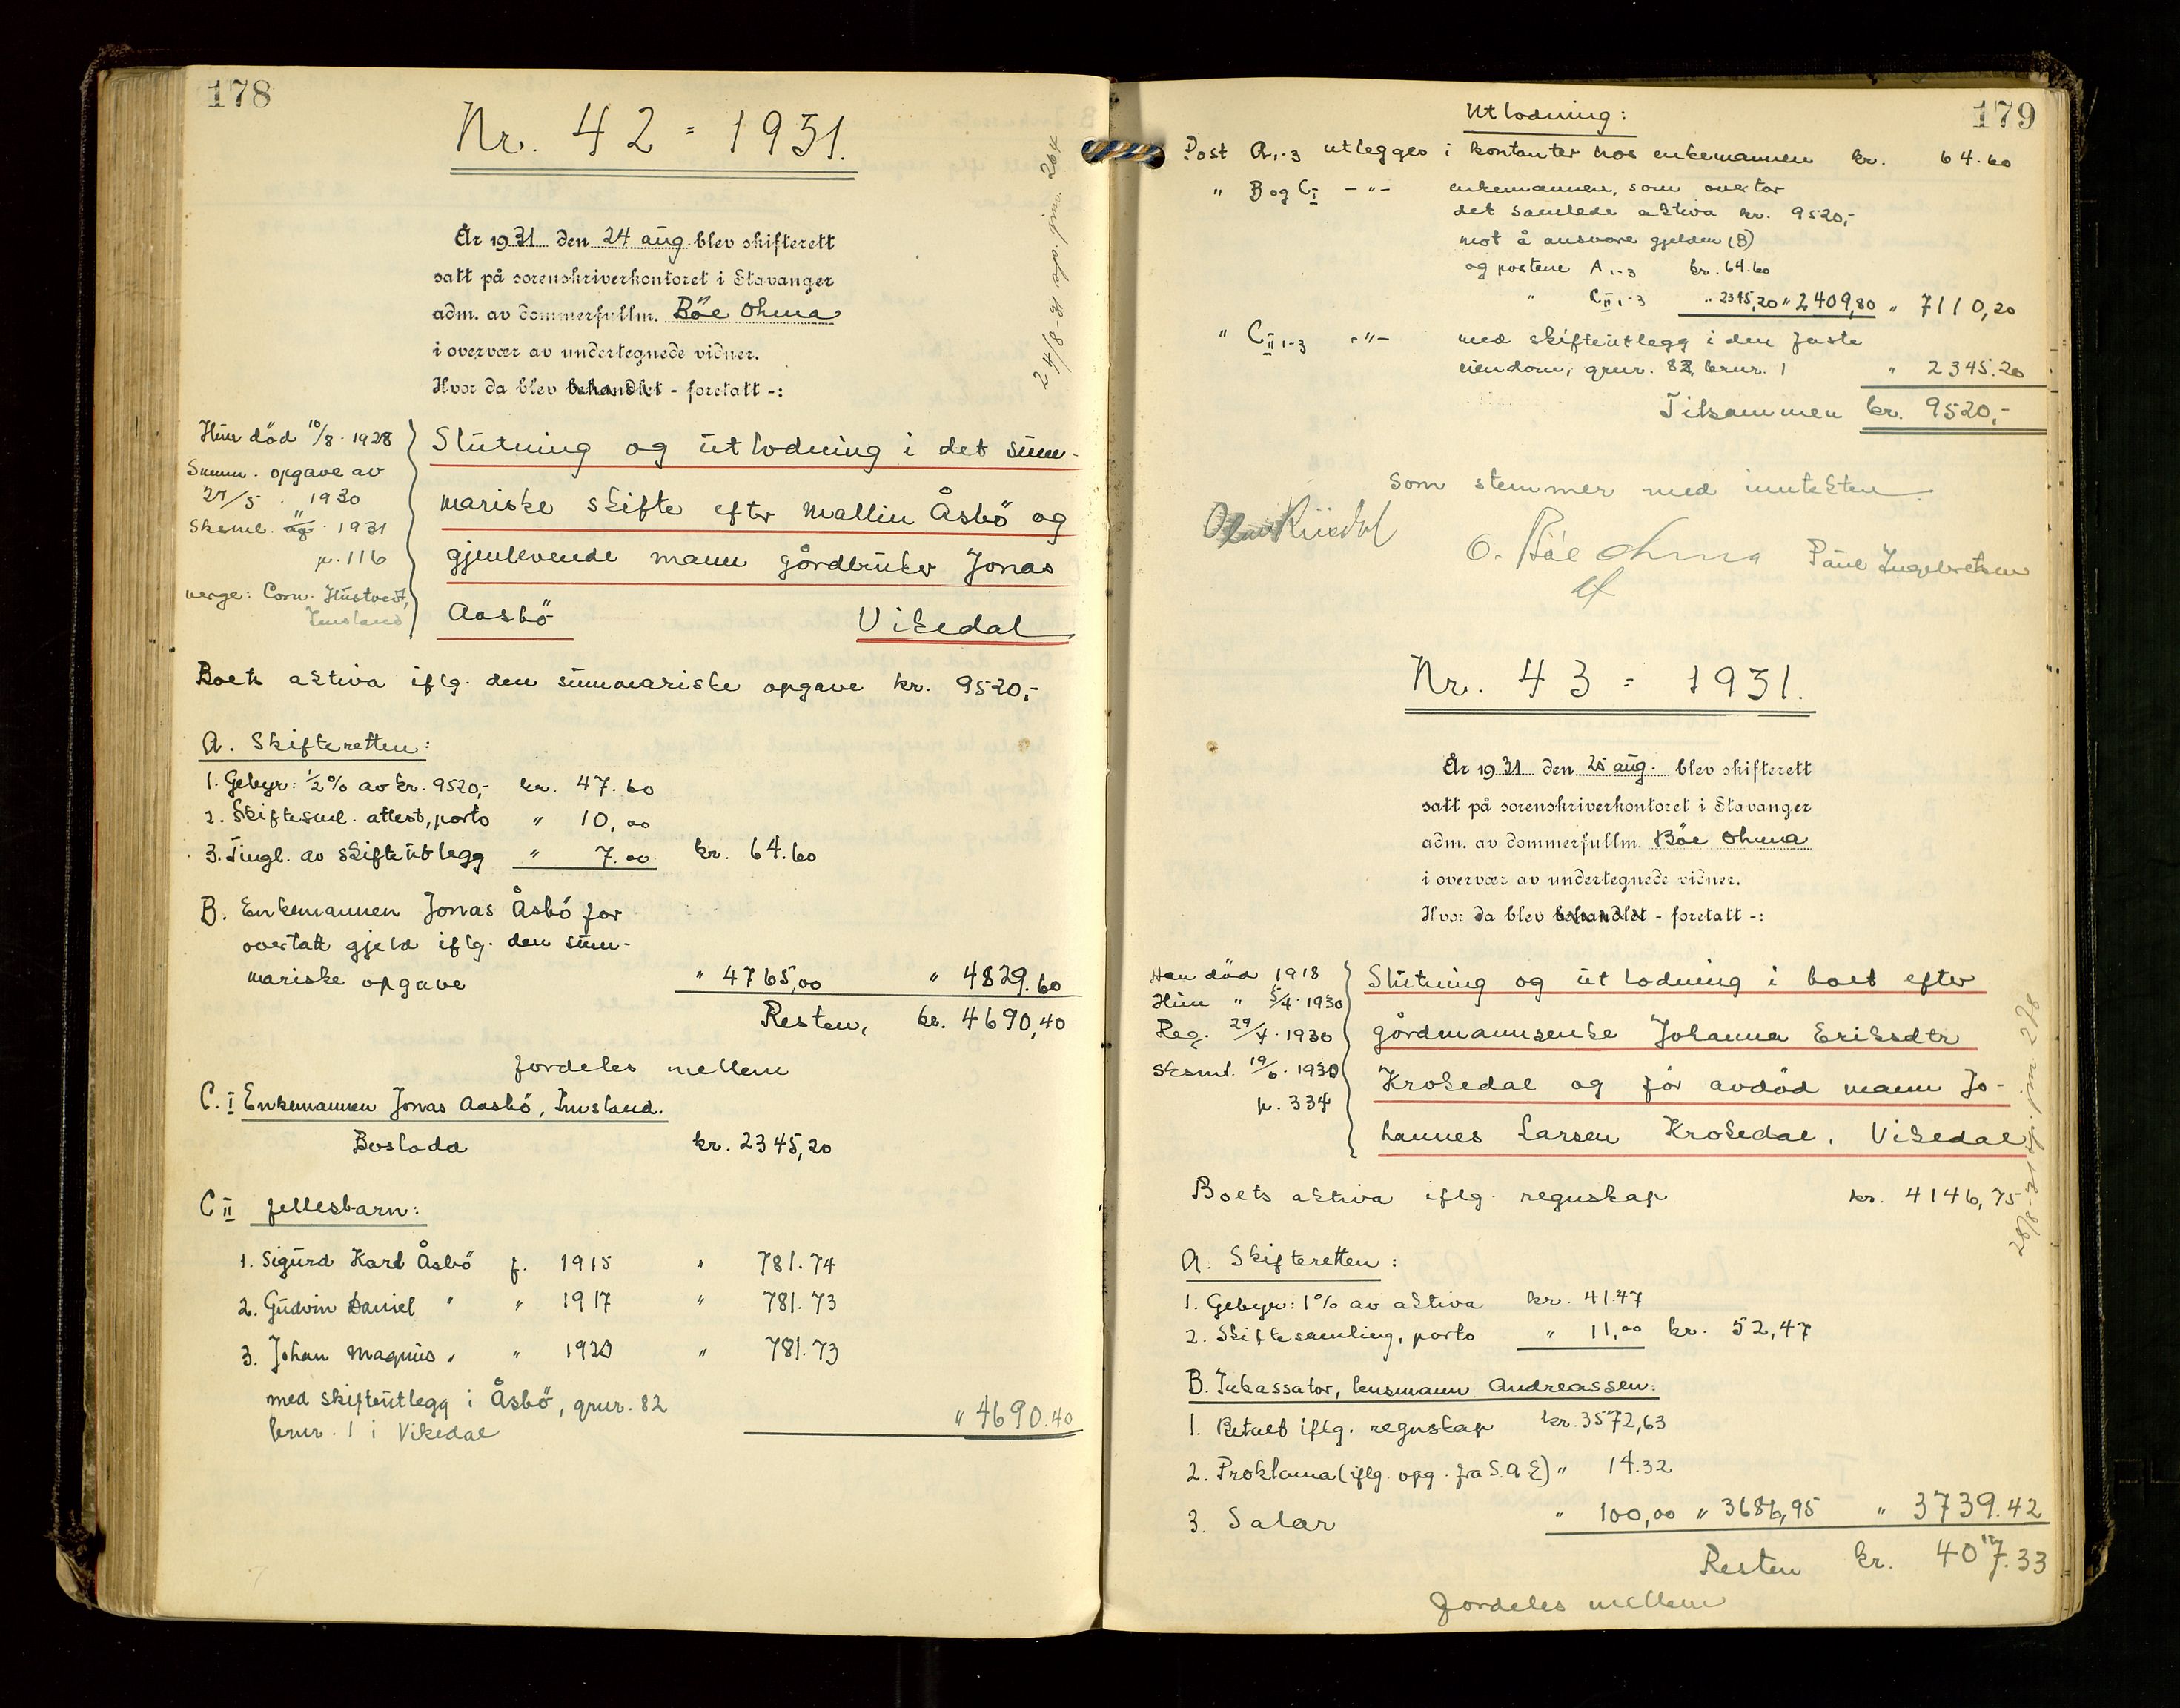 178
Nr. 42 = 1931.
24/8-31 sp. jnr. 264
År 1931 den 24 aug. blev skifterett
satt på sorenskriverkontoret i Stavanger
adm. av dommerfullm. Böe Ohma
i overvær av undertegnede vidner.
Hvor da blev behandlet - foretatt -:
Hun död 10/8. 1928
Summ. opgave av
27/5. 1930
Sksml. " 1931
p. 116
verge: Corn. Hustvedt,
Imsland
Slutning og utlodning i det sum-
mariske skifte efter Mallin Åsbö og
gjenlevende mann gårdbruker Jonas
Aasbö Vikedal
Boets aktiva iflg. den summariske opgave kr. 9520,-
A. Skifteretten:
1. Gebyr: 1/2 % av kr. 9520,- kr. 47.60
2. Skiftesml. attest, porto " 10,00
3. Tingl. av skifteutlegg " 7.00 kr. 64.60
B. Enkemannen Jonas Åsbö for
overtatt gjeld iflg. den sum-
mariske opgave " 4765,00 " 4829.60
Resten, kr. 4690,40
fordeles mellem
C. I Enkemannen Jonas Aasbö, Imsland.
Boslodd kr. 2345,20
C II fellesbarn:
1. Sigurd Karl Åsbö f. 1915 " 781.74
2. Gudvin Daniel " " 1917 " 781.73
3. Johan Magnus " " 1923 " 781.73
med skifteutlegg i Åsbö, gnr. 82
brnr. 1 i Vikedal " 4690.40
179
Utlodning:
Post A 1-3 utlegges i kontanter hos enkemannen kr. 64.60
" B og C I - " - enkemannen, som overtar
det samlede aktiva kr. 9520,-
mot å ansvare gjelden (B)
og postene A 1-3 kr. 64.60
" C II 1-3 " 2345,20 " 2409,80 " 7110,20
" C II 1-3 - " - med skifteutlegg i den faste
eiendom, gnr. 82, brnr. 1 " 2345.20
Tilsammen kr. 9520,-
som stemmer med inntekten
O. Böe Ohma Paul Ingebretsen
cf
Nr. 43 = 1931.
År 1931 den 25 aug. blev skifterett
satt på sorenskriverkontoret i Stavanger
adm. av dommerfullm. Böe Ohma
i overvær av undertegnede vidner.
Hvor da blev behandlet - foretatt -:
Han död 1918
Hun " 5/4. 1930
Reg. 29/4. 1930
Sksml. 19/6. 1930
p. 334
Slutning og utlodning i boet efter
gårdmannsenke Johanna Eriksdtr
Krokedal og för avdöd mann Jo-
hannes Larsen Krokedal, Vikedal
28/8-31 sp. jnr. 278
Boets aktiva iflg. regnskap kr. 4146,75
A. Skifteretten:
1. Gebyr: 1% av aktiva kr. 41.47
2. Skiftesamling, porto " 11,00 kr. 52,47
B. Inkassator, lensmann Andreassen:
1. Betalt iflg. regnskap kr. 3572,63
2. Proklama (iflg. opg. fra S.A.E) " 14.32
3. Salær " 100,00 " 3686,95 " 3739.42
Resten kr. 407.33
fordeles mellem